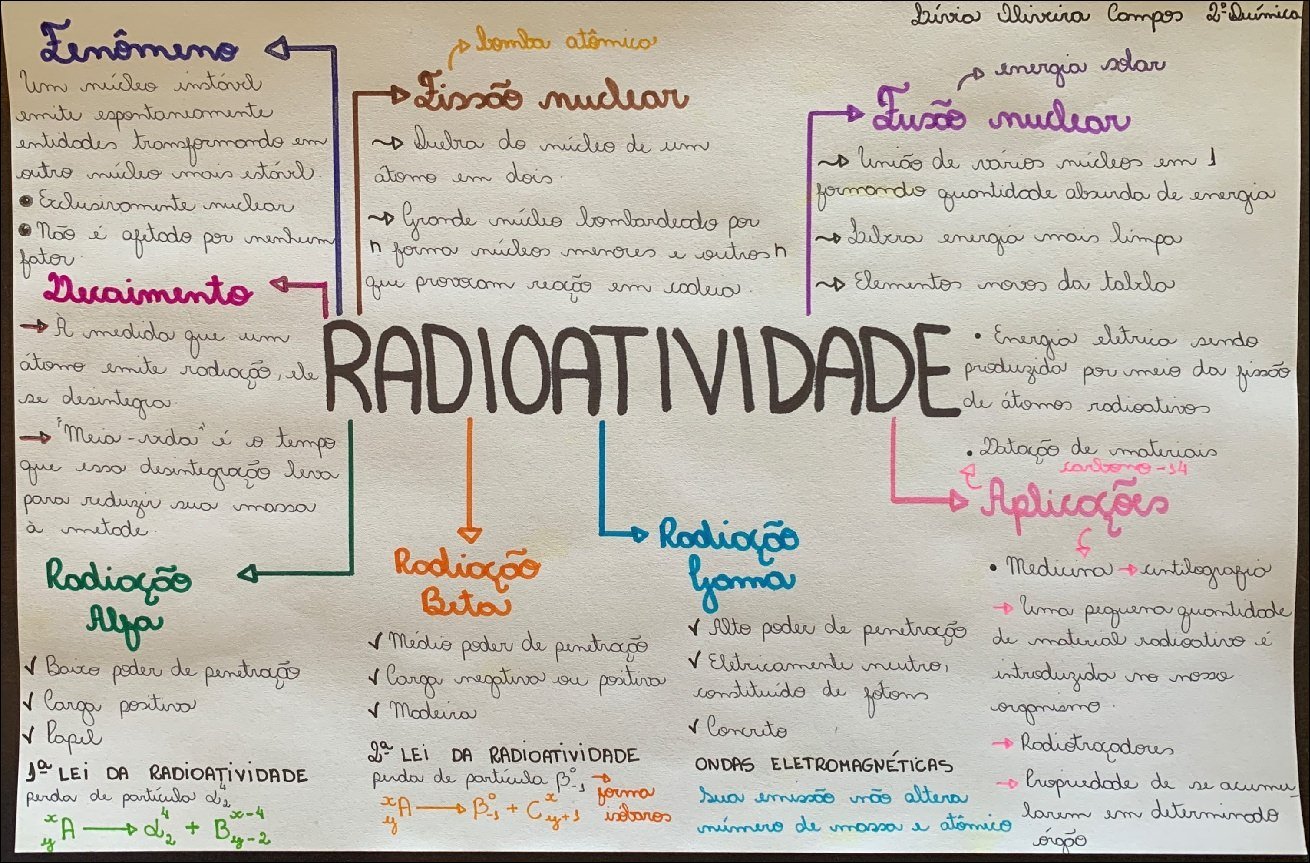 Lívia Oliveira Campos 2ºQuímica
Fenômeno
Um núcleo instável
emite espontaneamente
entidades transformando em
outro núcleo mais estável.
• Exclusivamente nuclear
• Não é afetado por nenhum
fator.
bomba atômica
Fissão nuclear
Quebra do núcleo de um
átomo em dois.
Grande núcleo bombardeado por
n forma núcleos menores e outros n
que provocam reação em cadeia.
energia solar
Fusão nuclear
União de vários núcleos em 1
formando quantidade absurda de energia
Libera energia mais limpa
Elementos novos da tabela
Decaimento
→ À medida que um
átomo emite radiação, ele
se desintegra
→ "Meia-vida" é o tempo
que essa desintegração leva
para reduzir sua massa
à metade.
RADIOATIVIDADE
• Energia eletrica sendo
produzida por meio da fissão
de átomos radioativos
• Datação de materiais
carbono-14
Aplicações
• Medicina → cintilografia
→ Uma pequena quantidade
de material radioativo é
introduzida no nosso
organismo.
→ Radiotraçadores
→ Propriedade de se acumu-
larem em determinado
órgão
Radiação
Alfa
✓ Baixo poder de penetração
✓ Carga positiva
✓ Papel
1ª LEI DA RADIOATIVIDADE
perda de partícula α⁴₂
ˣᵧA → α⁴₂ + Bˣ⁻⁴ᵧ₋₂
Radiação
Beta
✓ Médio poder de penetração
✓ Carga negativa ou positiva
✓ Madeira
2ª LEI DA RADIOATIVIDADE
perda de partícula β⁰₋₁ → forma
isóbaros
ˣᵧA → β⁰₋₁ + Cˣᵧ₊₁
Radiação
Gama
✓ Alto poder de penetração
✓ Eletricamente neutro,
constituído de fotons
✓ Concreto
ONDAS ELETROMAGNÉTICAS
Sua emissão não altera
número de massa e atômico